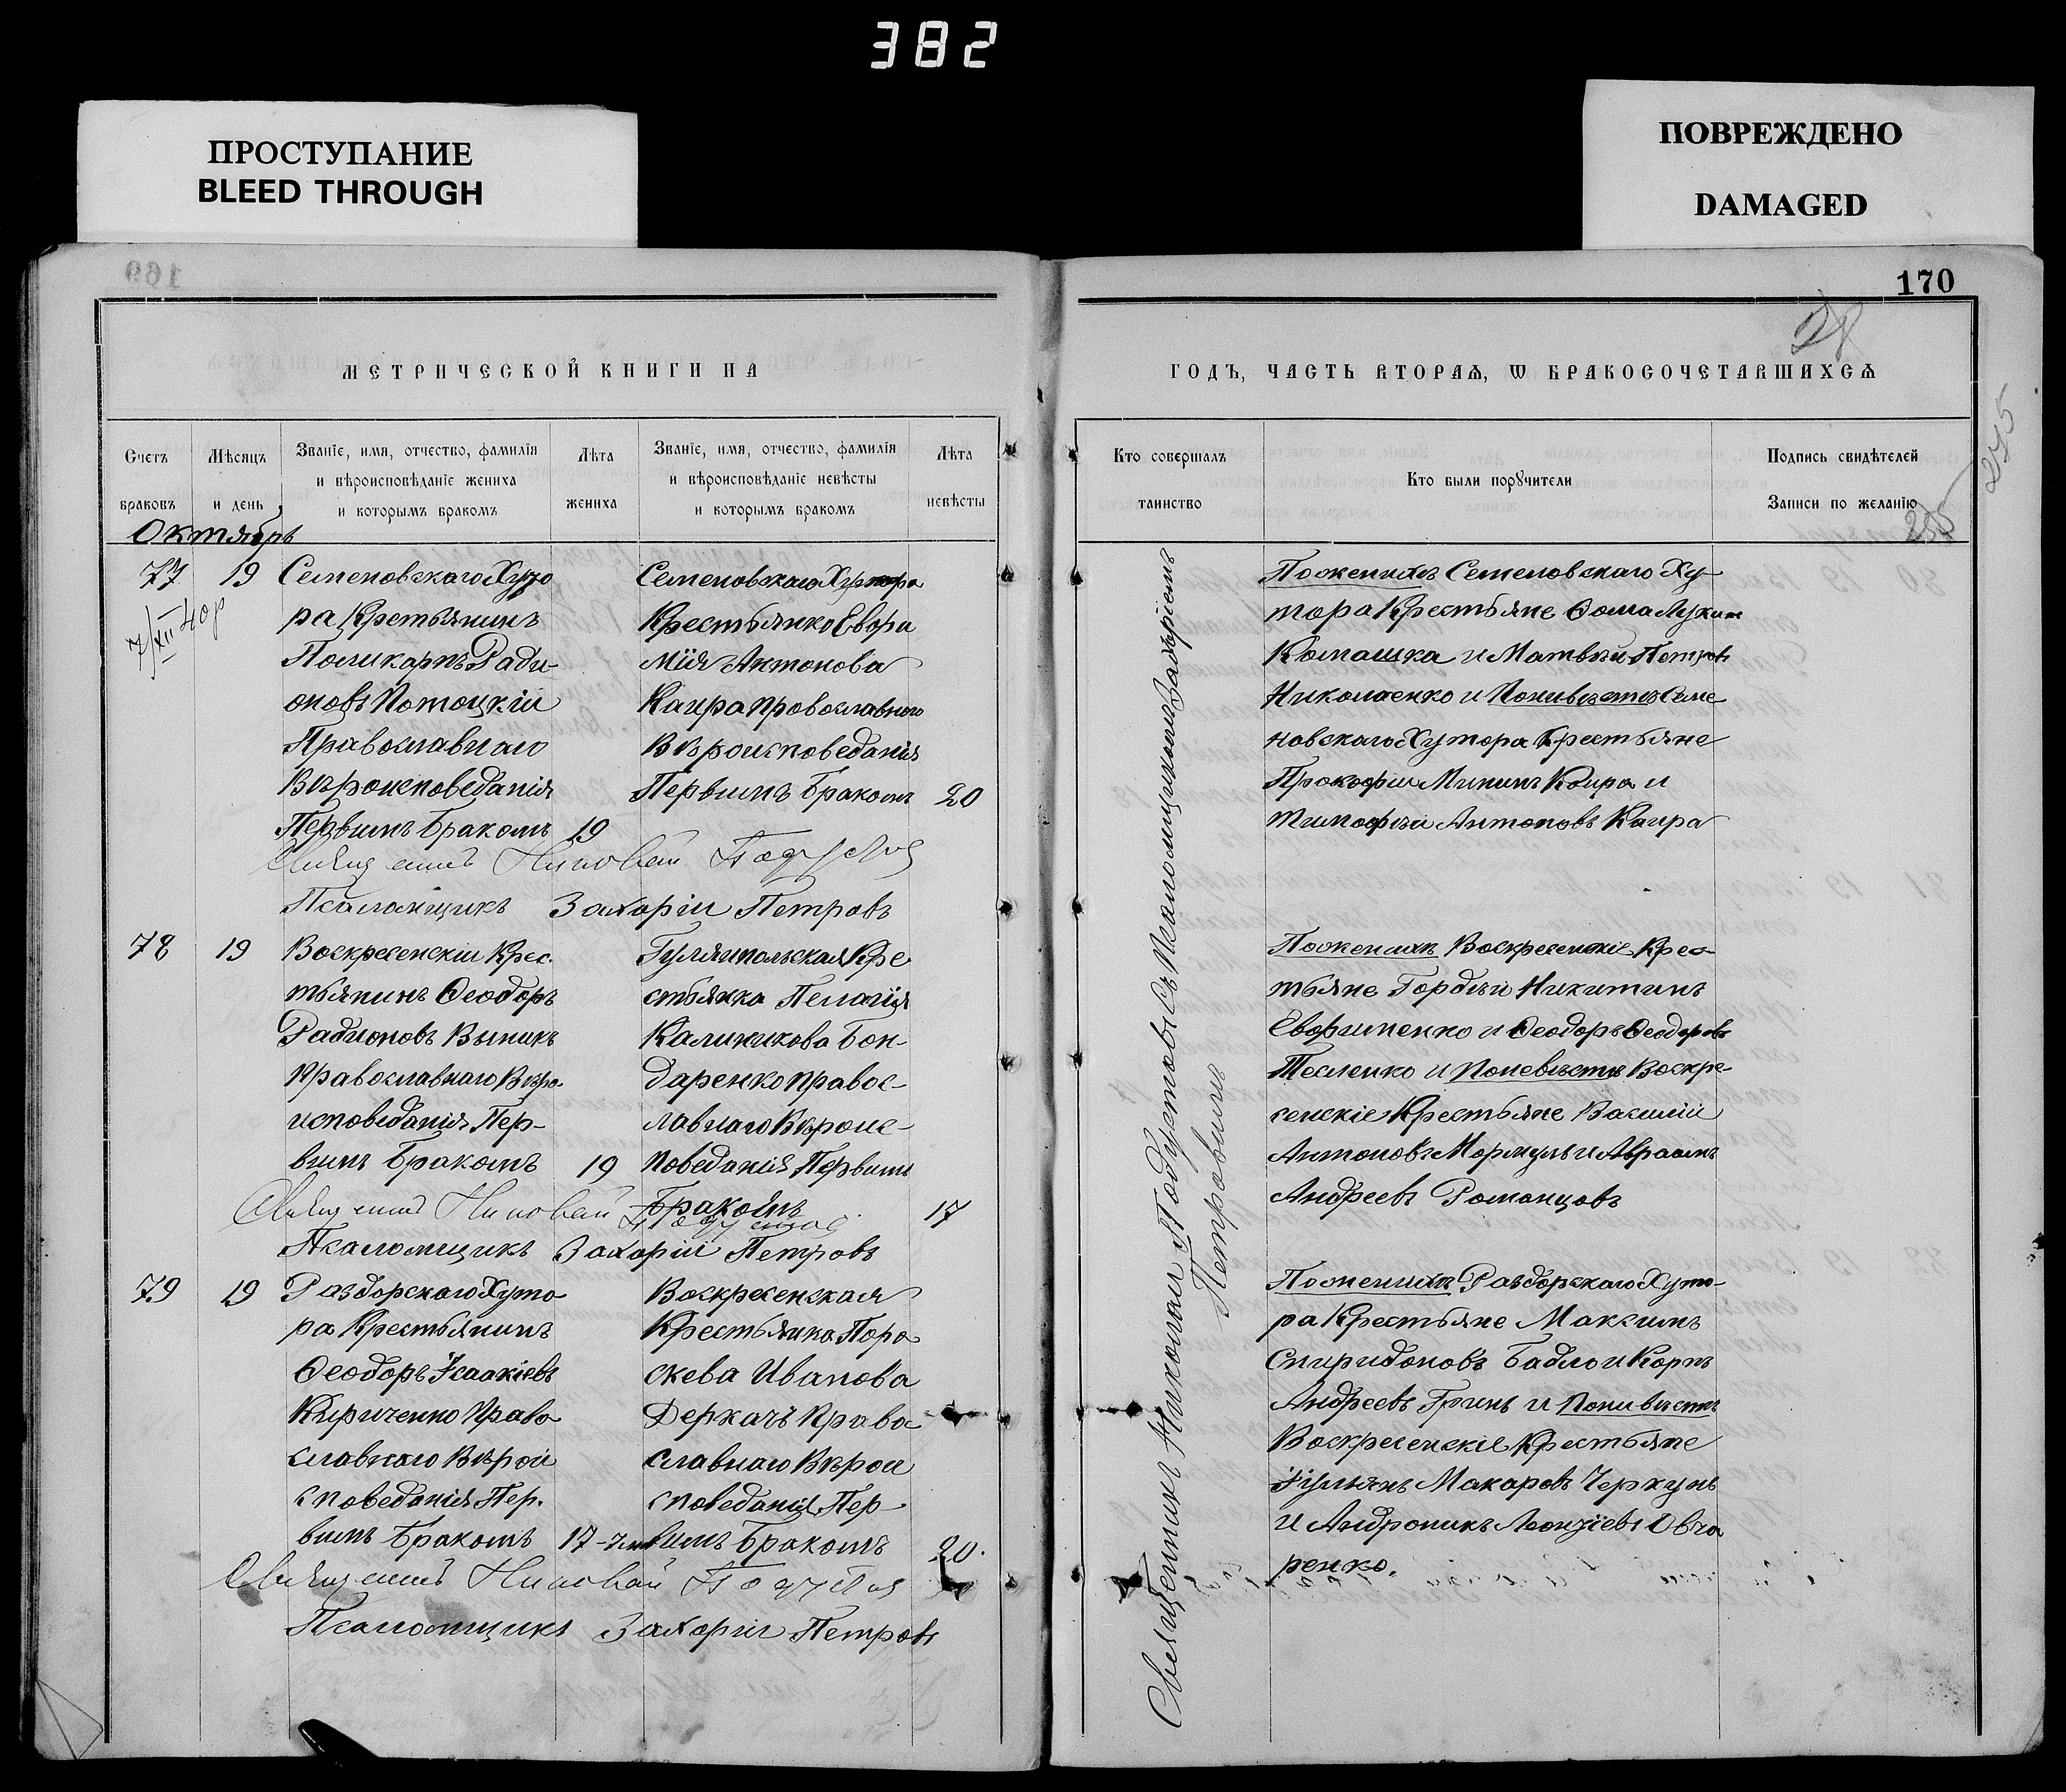 382
ПРОСТУПАНИЕ
BLEED THROUGH
ПОВРЕЖДЕНО
DAMAGED
169
170
МЕТРИЧЕСКОЙ КНИГИ НА
Счетъ браковъ
Мѣсяцъ и день
Званїе, имя, отчество, фамилїя
и вѣроисповѣданїе жениха
и которымъ бракомъ
Лѣта жениха
Званїе, имя, отчество, фамилїя
и вѣроисповѣданїе невѣсты
и которымъ бракомъ
Лѣта невѣсты
Октябрь
77
19
7/XII 40 р
Семеновскаго Хуто
ра Крестьянинъ
Поликарпъ Ради-
оновъ Потоцкій
Православнаго
Вѣроисповеданія
Первымъ Бракомъ
19
Семеновскаго Хутора
Крестьянка Евфи
мія Антонова
Каира православного
Вѣроисповеданія
Первымъ Бракомъ
20
Священникъ Николай
Псаломщикъ Захарій Петровъ
78
19
Воскресенскій Крес.
тьянинъ Ѳеодоръ
Радионовъ Выникъ
православнаго Вѣро-
исповеданія Пер-
вымъ Бракомъ
19
Гуляипольская Кре
стьянка Пелагія
Калиникова Бон-
даренко правос-
лавнаго Вѣроис-
поведанія Первымъ
Бракомъ
17
Священникъ Николай
Псаломщикъ Захарій Петровъ
79
19
Раздорскаго Хуто
ра Крестьянинъ
Ѳеодоръ Ісаакіевъ
Кириченко Право
славнаго Вѣрои
споведанія Пер.
вымъ Бракомъ
17
Воскресенская
Крестьянка Пара
скева Иванова
Деркачъ Право
славнаго Вѣрои
споведанія Пер
вымъ Бракомъ
20.
Священникъ Николай
Псаломщикъ Захарій Петровъ
ГОДЪ, ЧАСТЬ ВТОРАЯ, Ѡ БРАКОСОЧЕТАВШИХСЯ
275
Кто совершалъ
таинство
Кто были порꙋчители
Подпись свидѣтелей
Записи по желанїю
Священникъ Николай Подустовъ съ Псаломщикомъ Захаріемъ
Петровымъ
По женихѣ Семеновскаго Ху-
тора Крестьяне Ѳома Лукин
Комашка и Матвѣй Петровъ
Николаенко и по невѣстѣ Семе
новскаго Хутора Крестьяне
Прокофій Мининъ Каира и
Тимофѣй Антоновъ Каира
По женихѣ Воскресенскіе Крес-
тьяне Гордѣй Никитинъ
Евфименко и Ѳеодоръ Ѳеодоровъ
Тесленко и По невѣстѣ Воскре-
сенскіе Крестьяне Василій
Антоновъ Мормуль и Авраамъ
Андреевъ Романцовъ
По женихѣ Раздорскаго Хуто-
ра Крестьяне Максимъ
Спиридоновъ Бадло и Карпъ
Андреевъ Гринь и По невѣстѣ
Воскресенскіе Крестьяне
Іульянъ Макаровъ Черкунъ
и Андроникъ Леонтіевъ Овча
ренко.